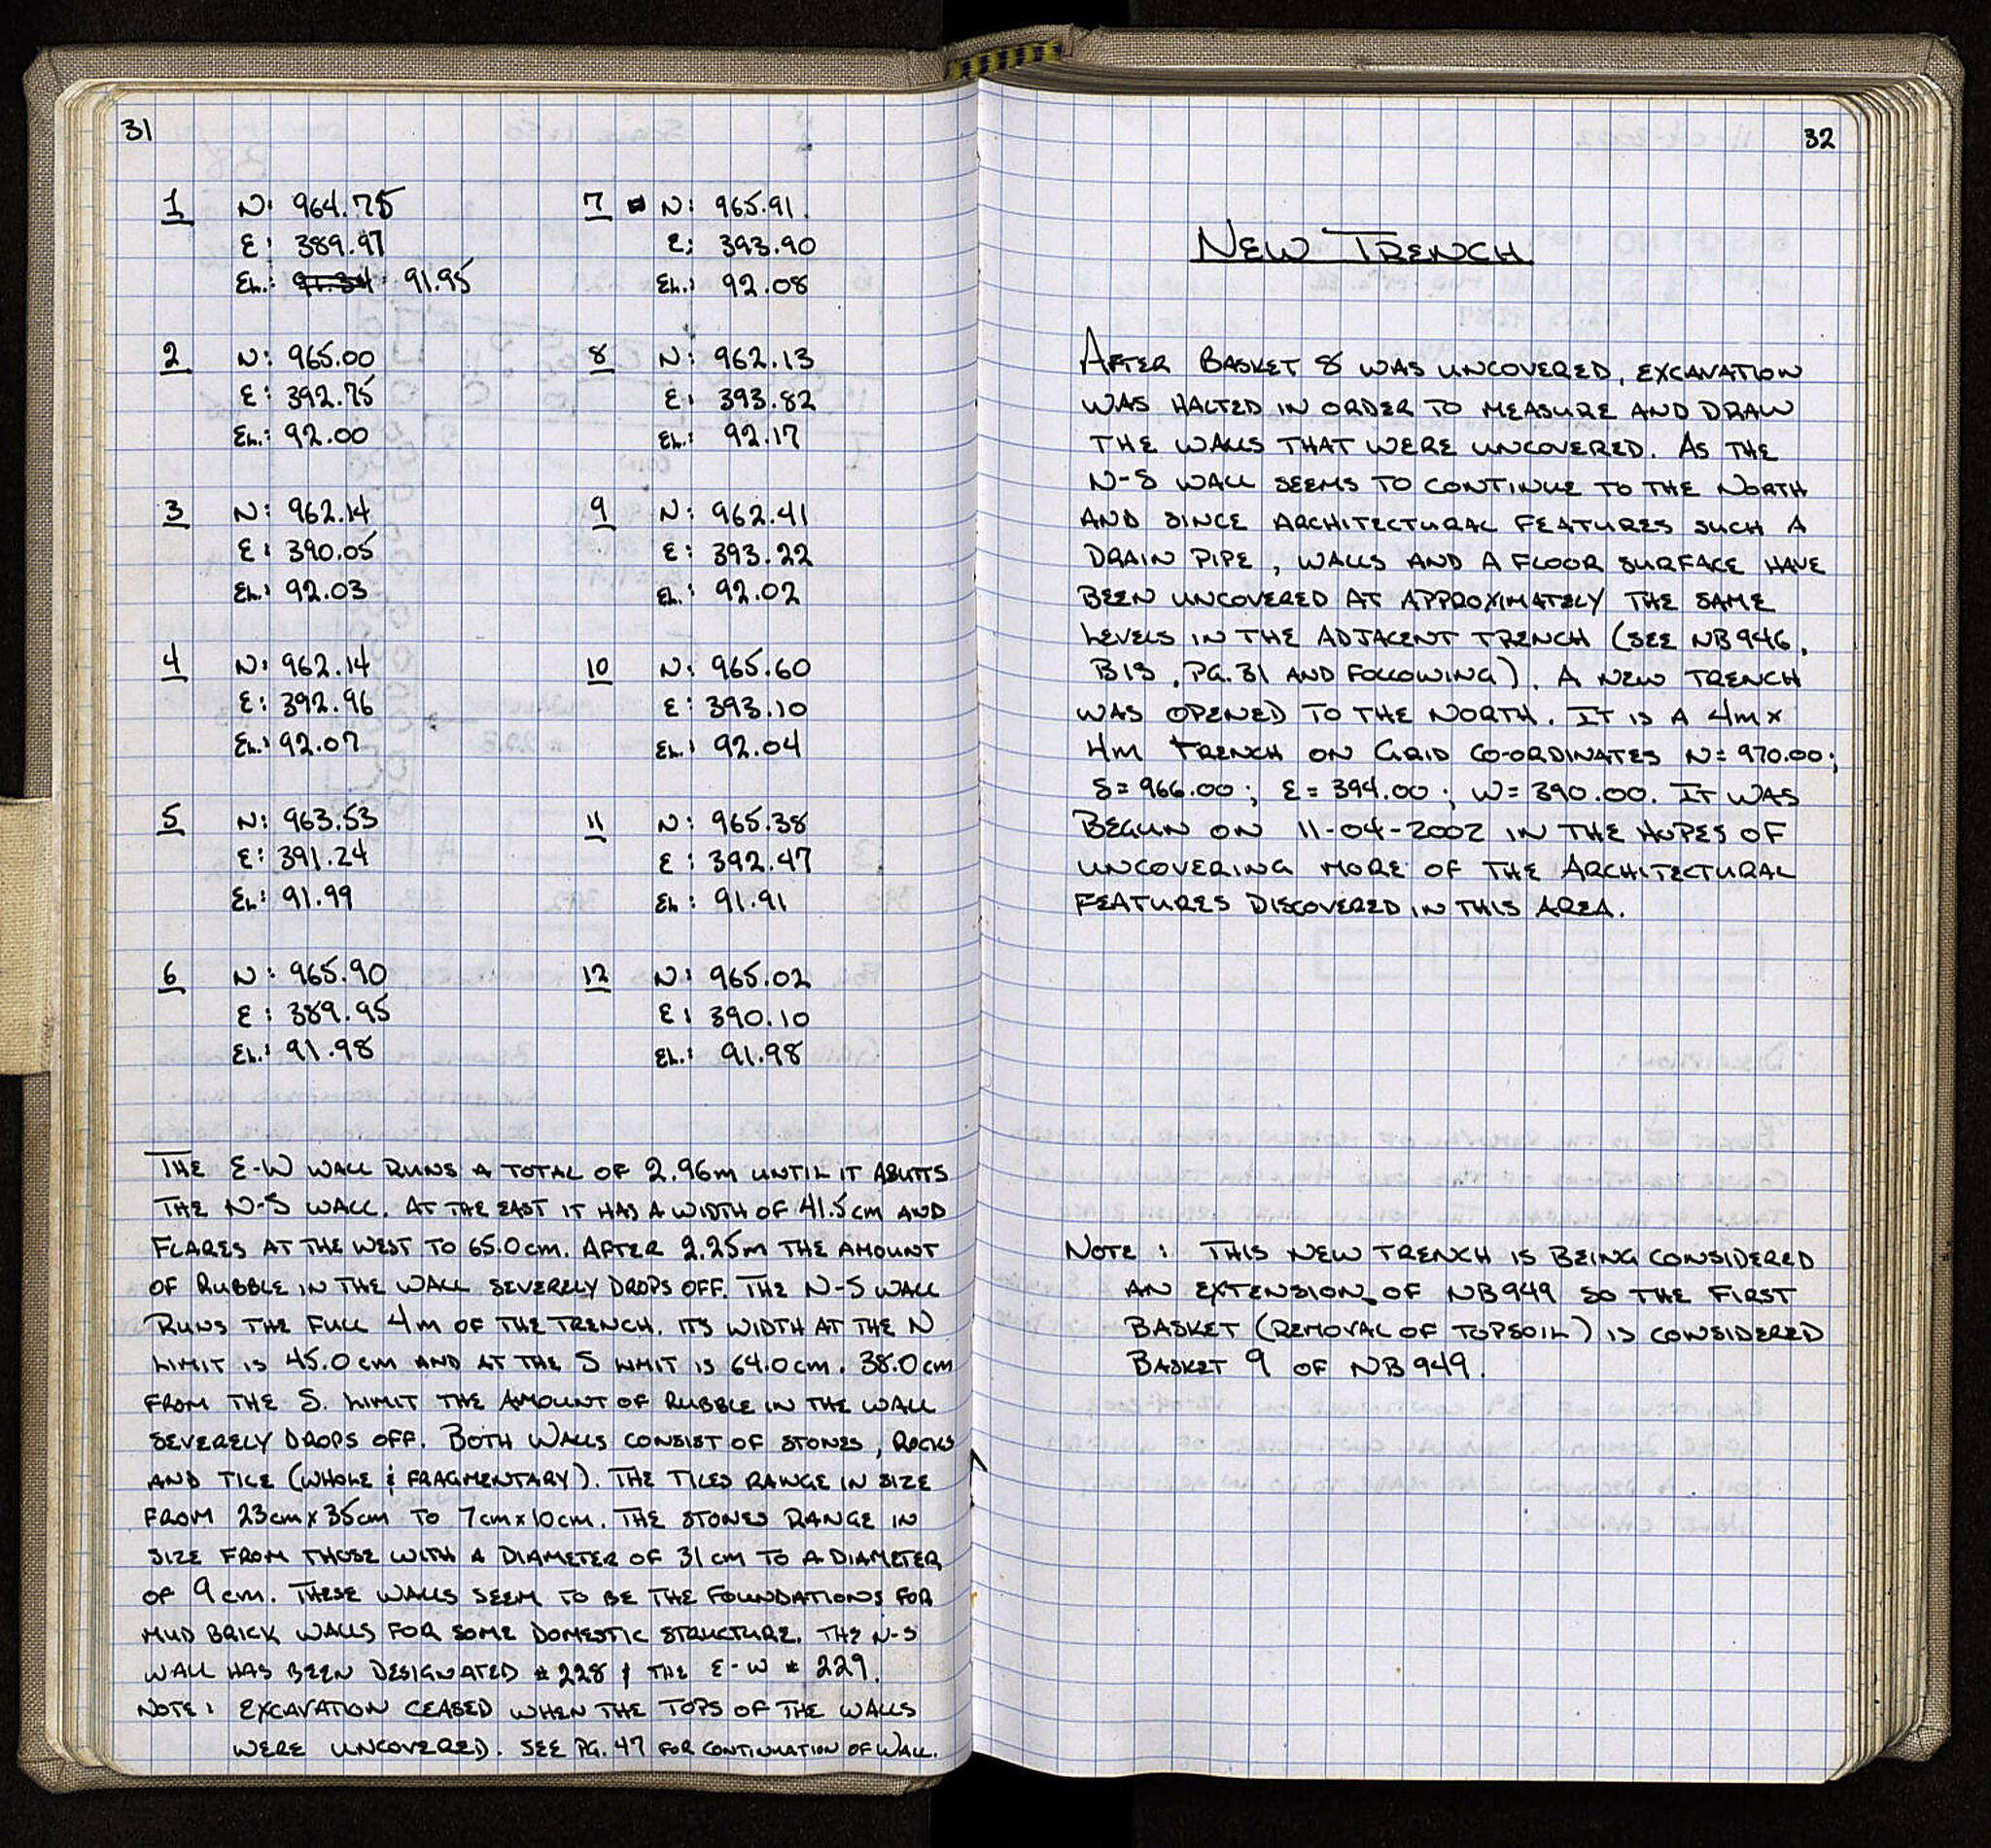 31
1 N: 964.75
E: 389.97
EL.: 91.34 91.95
2 N: 965.00
E: 392.75
EL.: 92.00
3 N: 962.14
E: 390.05
EL.: 92.03
4 N: 962.14
E: 392.96
EL.: 92.07
5 N: 963.53
E: 391.24
EL: 91.99
6 N: 965.90
E: 389.95
EL.: 91.98
7 N: 965.91
E: 393.90
EL.: 92.08
8 N: 962.13
E: 393.82
EL.: 92.17
9 N: 962.41
E: 393.22
EL.: 92.02
10 N: 965.60
E: 393.10
EL: 92.04
11 N: 965.38
E: 392.47
EL: 91.91
12 N: 965.02
E: 390.10
EL.: 91.98
THE E-W WALL RUNS A TOTAL OF 2.96m UNTIL IT ABUTTS
THE N-S WALL. AT THE EAST IT HAS A WIDTH OF 41.5cm AND
FLARES AT THE WEST TO 65.0cm. AFTER 2.25m THE AMOUNT
OF RUBBLE IN THE WALL SEVERELY DROPS OFF. THE N-S WALL
RUNS THE FULL 4m OF THE TRENCH. ITS WIDTH AT THE N
LIMIT IS 45.0cm AND AT THE S LIMIT IS 64.0cm. 38.0cm
FROM THE S. LIMIT THE AMOUNT OF RUBBLE IN THE WALL
SEVERELY DROPS OFF. BOTH WALLS CONSIST OF STONES, ROCKS
AND TILE (WHOLE & FRAGMENTARY). THE TILES RANGE IN SIZE
FROM 23cm x 35cm TO 7cm x 10cm. THE STONES RANGE IN
SIZE FROM THOSE WITH A DIAMETER OF 31cm TO A DIAMETER
OF 9cm. THESE WALLS SEEM TO BE THE FOUNDATIONS FOR
MUD BRICK WALLS FOR SOME DOMESTIC STRUCTURE. THE N-S
WALL HAS BEEN DESIGNATED #228 & THE E-W #229.
NOTE: EXCAVATION CEASED WHEN THE TOPS OF THE WALLS
WERE UNCOVERED. SEE PG. 47 FOR CONTINUATION OF WALL.
32
NEW TRENCH
AFTER BASKET 8 WAS UNCOVERED, EXCAVATION
WAS HALTED IN ORDER TO MEASURE AND DRAW
THE WALLS THAT WERE UNCOVERED. AS THE
N-S WALL SEEMS TO CONTINUE TO THE NORTH
AND SINCE ARCHITECTURAL FEATURES SUCH A
DRAIN PIPE, WALLS AND A FLOOR SURFACE HAVE
BEEN UNCOVERED AT APPROXIMATELY THE SAME
LEVELS IN THE ADJACENT TRENCH (SEE NB946,
B13, PG. 31 AND FOLLOWING). A NEW TRENCH
WAS OPENED TO THE NORTH. IT IS A 4m x
4m TRENCH ON GRID CO-ORDINATES N=970.00;
S=966.00; E=394.00; W=390.00. IT WAS
BEGUN ON 11-04-2002 IN THE HOPES OF
UNCOVERING MORE OF THE ARCHITECTURAL
FEATURES DISCOVERED IN THIS AREA.
NOTE: THIS NEW TRENCH IS BEING CONSIDERED
AN EXTENSION OF NB949 SO THE FIRST
BASKET (REMOVAL OF TOPSOIL) IS CONSIDERED
BASKET 9 OF NB949.